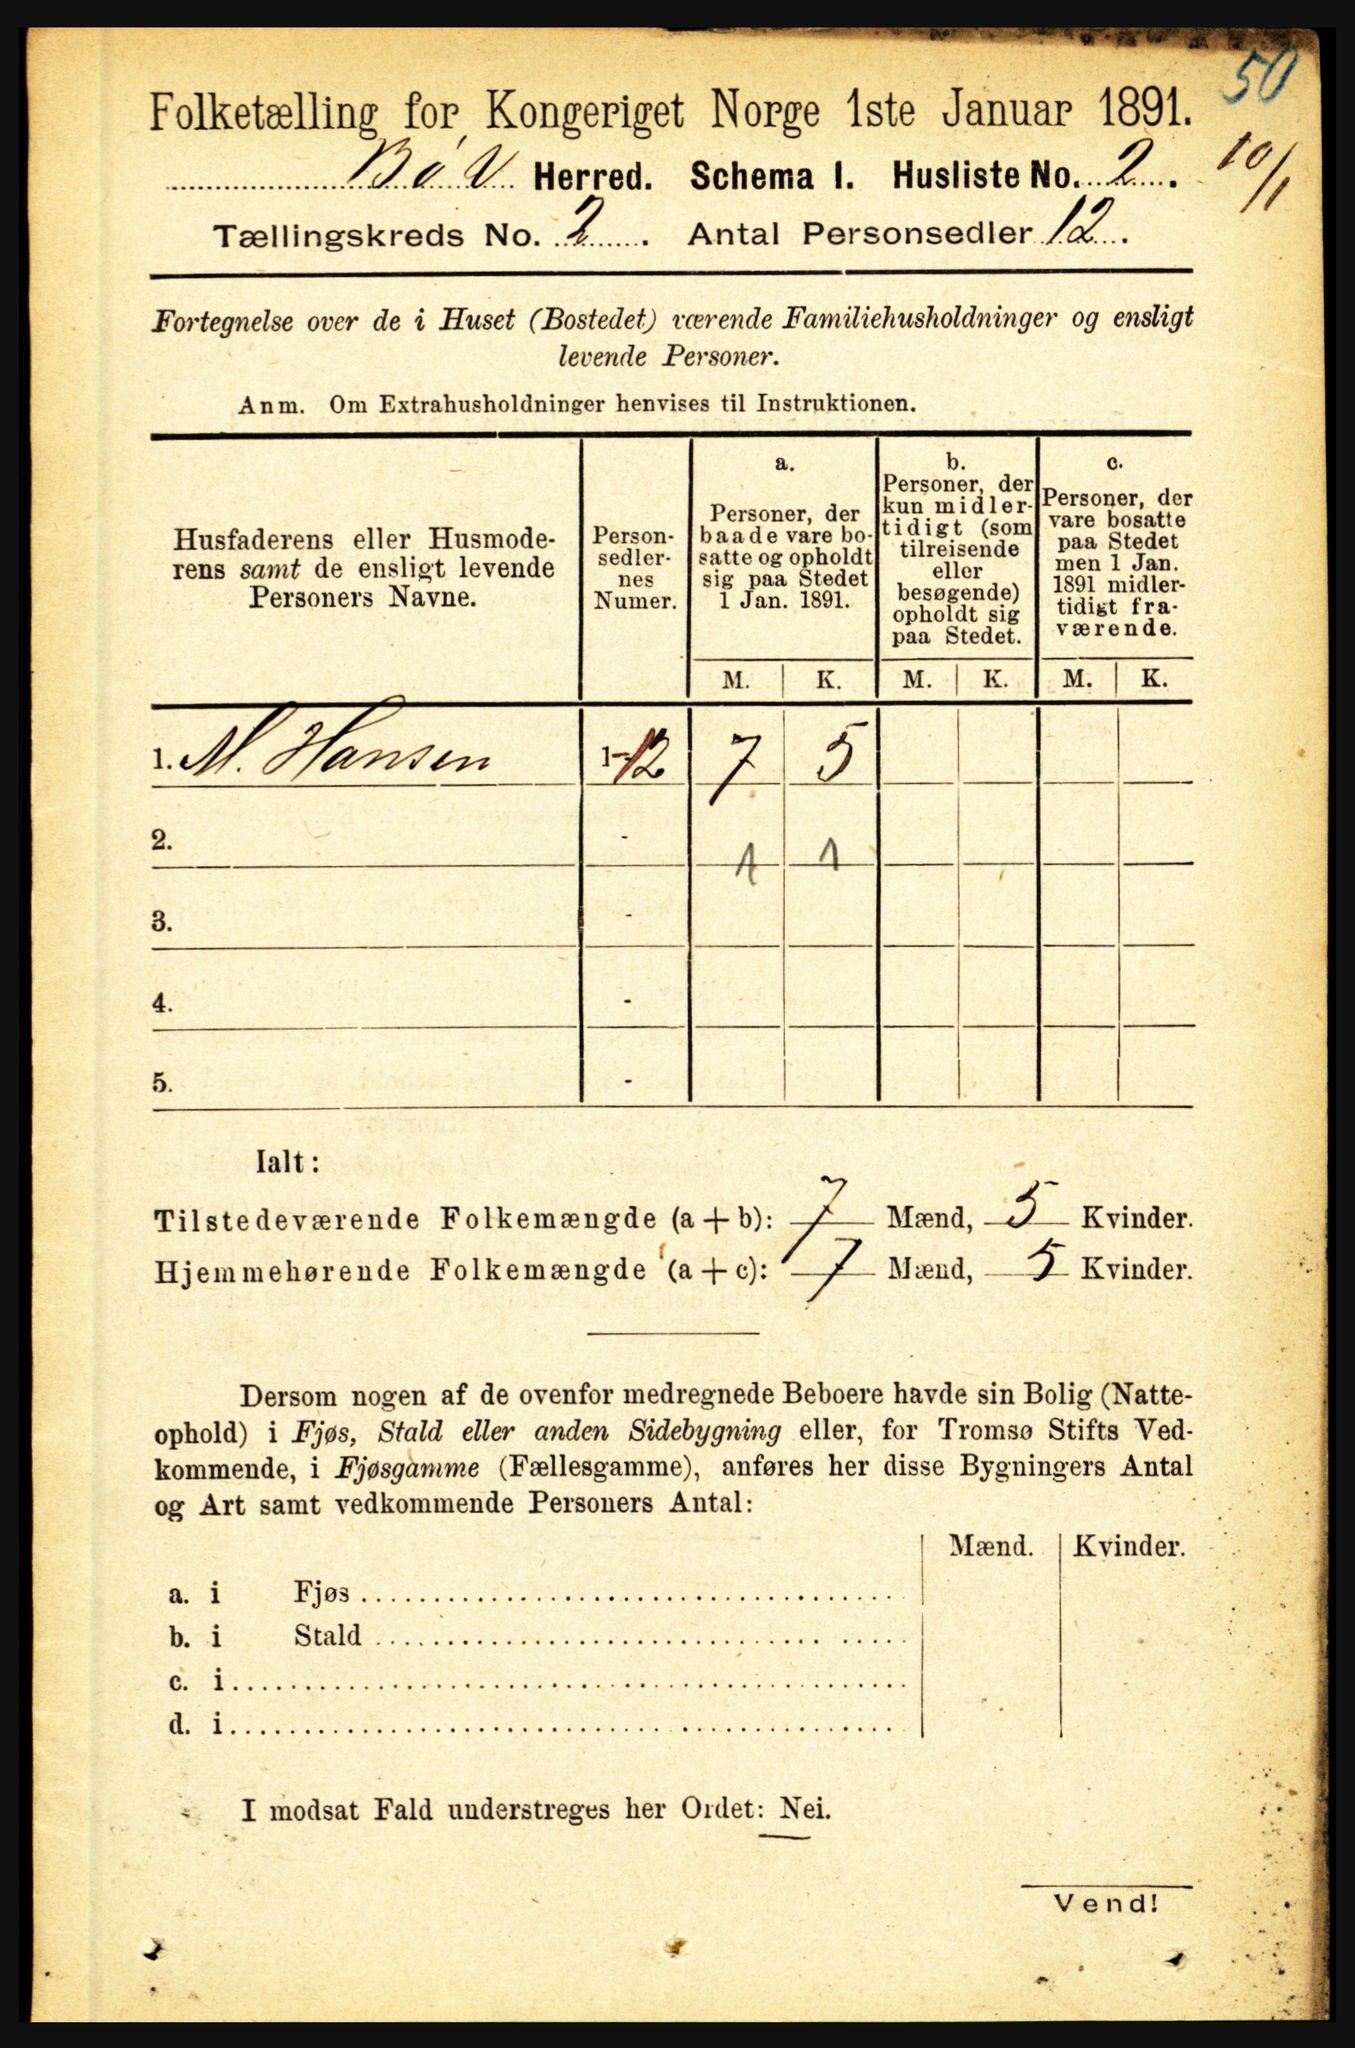 50
Folketælling for Kongeriget Norge 1ste Januar 1891.
10/1
Bø V Herred. Schema I. Husliste No. 2.
Tællingskreds No. 2. Antal Personsedler 12.
Fortegnelse over de i Huset (Bostedet) værende Familiehusholdninger og ensligt
levende Personer.
Anm. Om Extrahusholdninger henvises til Instruktionen.
Husfaderens eller Husmode-
rens samt de ensligt levende
Personers Navne.
Person-
sedler-
nes
Numer.
a.
Personer, der
baade vare bo-
satte og opholdt
sig paa Stedet
1 Jan. 1891.
b.
Personer, der
kun midler-
tidigt (som
tilreisende
eller
besøgende)
opholdt sig
paa Stedet.
c.
Personer, der
vare bosatte
paa Stedet
men 1 Jan.
1891 midler-
tidigt fra-
værende.
M. K. M. K. M. K.
1. M. Hansen 1-12 7 5
2. -
1 1
3. -
4. -
5. -
Ialt:
Tilstedeværende Folkemængde (a + b): 7 Mænd, 5 Kvinder.
Hjemmehørende Folkemængde (a + c): 7 Mænd, 5 Kvinder.
Dersom nogen af de ovenfor medregnede Beboere havde sin Bolig (Natte-
ophold) i Fjøs, Stald eller anden Sidebygning eller, for Tromsø Stifts Ved-
kommende, i Fjøsgamme (Fællesgamme), anføres her disse Bygningers Antal
og Art samt vedkommende Personers Antal:
Mænd. Kvinder.
a. i Fjøs
b. i Stald
c. i
d. i
I modsat Fald understreges her Ordet: Nei.
Vend!